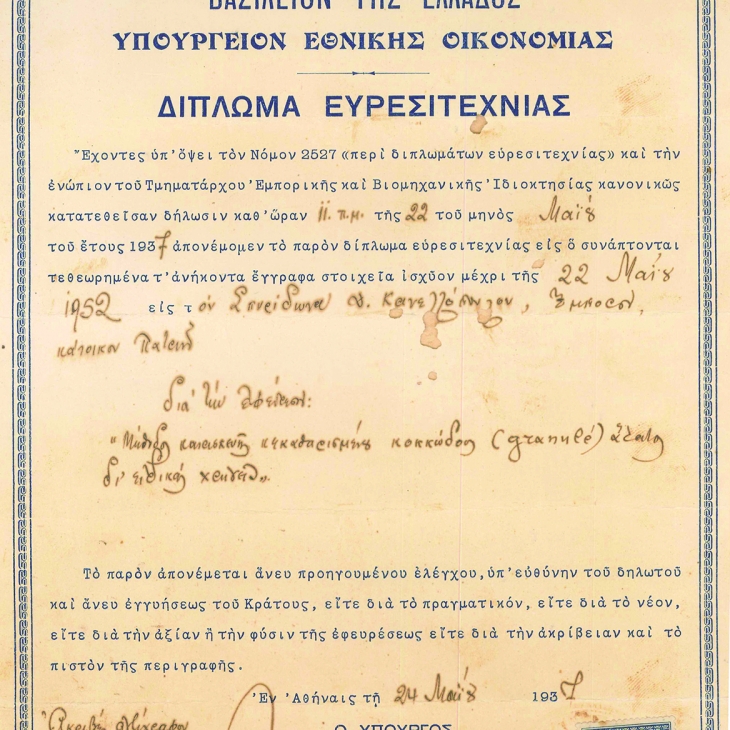 ΒΑΣΙΛΕΙΟΝ ΤΗΣ ΕΛΛΑΔΟΣ
ΥΠΟΥΡΓΕΙΟΝ ΕΘΝΙΚΗΣ ΟΙΚΟΝΟΜΙΑΣ
ΔΙΠΛΩΜΑ ΕΥΡΕΣΙΤΕΧΝΙΑΣ
Ἔχοντες ὑπ' ὄψει τὸν Νόμον 2527 «περὶ διπλωμάτων εὑρεσιτεχνίας» καὶ τὴν
ἐνώπιον τοῦ Τμηματάρχου Ἐμπορικῆς καὶ Βιομηχανικῆς Ἰδιοκτησίας κανονικῶς
κατατεθεῖσαν δήλωσιν καθ' ὥραν 11 π.μ. τῆς 22 τοῦ μηνὸς Μαΐου
τοῦ ἔτους 1937 ἀπονέμομεν τὸ παρὸν δίπλωμα εὑρεσιτεχνίας εἰς ὃ συνάπτονται
τεθεωρημένα τ' ἀνήκοντα ἔγγραφα στοιχεῖα ἰσχῦον μέχρι τῆς 22 Μαΐου
1952 εἰς τὸν Σπυρίδωνα Κανελλόπουλον, Ἔμπορον,
κάτοικον Πατρῶν
διὰ τὴν ἐφεύρεσιν:
«Μέθοδος κατασκευῆς κεκαθαρισμένου κοκκώδους (granulé) ἅλατος
δι' εἰδικῶν
Τὸ παρὸν ἀπονέμεται ἄνευ προηγουμένου ἐλέγχου, ὑπ' εὐθύνην τοῦ δηλωτοῦ
καὶ ἄνευ ἐγγυήσεως τοῦ Κράτους, εἴτε διὰ τὸ πραγματικόν, εἴτε διὰ τὸ νέον,
εἴτε διὰ τὴν ἀξίαν ἢ τὴν φύσιν τῆς ἐφευρέσεως εἴτε διὰ τὴν ἀκρίβειαν καὶ τὸ
πιστὸν τῆς περιγραφῆς.
Ἐν Ἀθήναις τῇ 24 Μαΐου 1937
Ἀκριβὲς Ἀντίγραφον
Ο ΥΠΟΥΡΓΟΣ